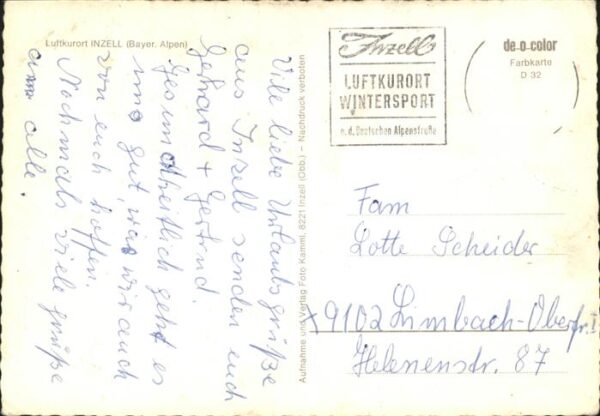 Luftkurort INZELL (Bayer. Alpen)
Viele liebe Urlaubsgrüße
aus Inzell senden euch
Gerhard + Gertrud.
Gesundheitlich geht es
uns gut, was wir auch
von euch hoffen.
Nochmals viele grüße
an alle.
Aufnahme und Verlag Foto Kamml, 8221 Inzell (Obb.) – Nachdruck verboten
Inzell
LUFTKURORT
WINTERSPORT
a. d. Deutschen Alpenstraße
de-o-color
Farbkarte
D 32
Fam
Lotte Scheider
9102 Limbach-Oberfr. I
Helenenstr. 87